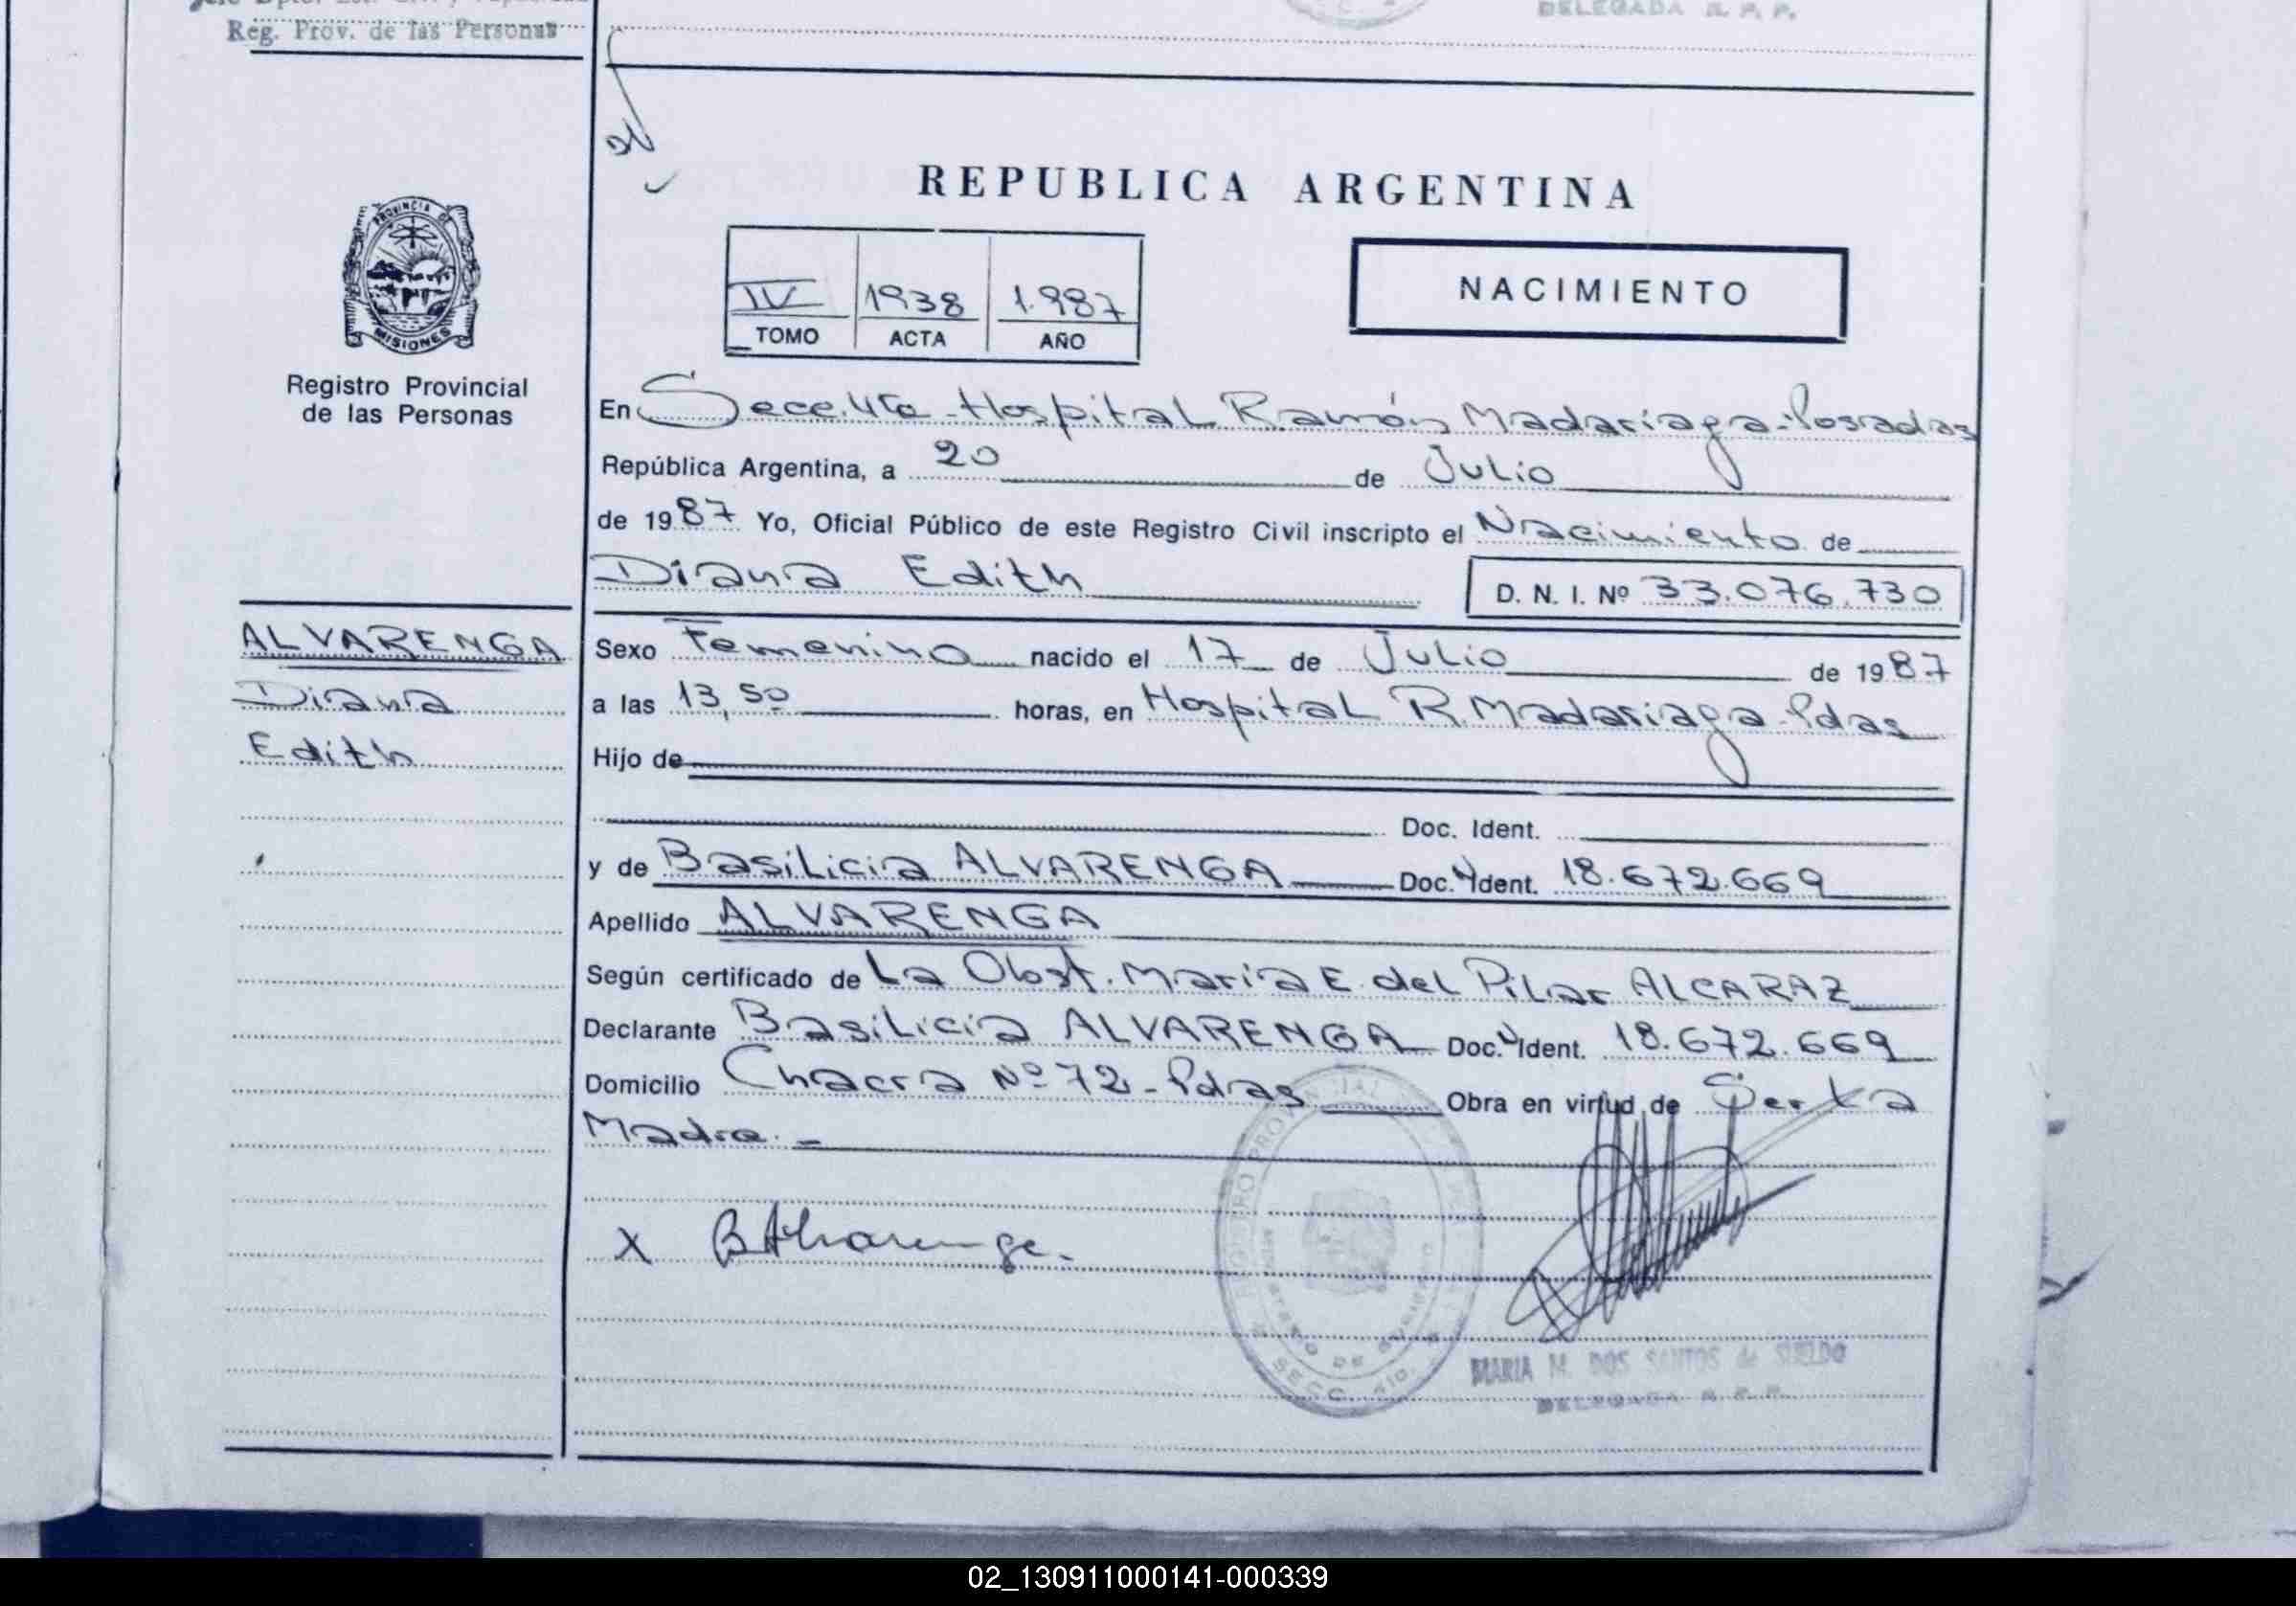 Reg. Prov. de las Personas
DELEGADA R. P. P.
REPUBLICA ARGENTINA
PROVINCIA DE
MISIONES
IV 1938 1.987
TOMO ACTA AÑO
NACIMIENTO
Registro Provincial
de las Personas
En Secc. 4ta - Hospital Ramón Madariaga - Posadas
República Argentina, a 20 de Julio
de 1987 Yo, Oficial Público de este Registro Civil inscripto el Nacimiento de
Diana Edith D. N. I. Nº 33.076.730
ALVARENGA
Diana
Edith
Sexo Femenino nacido el 17 de Julio de 1987
a las 13,50 horas, en Hospital R. Madariaga - Pdas
Hijo de
Doc. Ident.
y de Basilicia ALVARENGA Doc. Ident. 18.672.669
Apellido ALVARENGA
Según certificado de La Obst. María E. del Pilar ALCARAZ
Declarante Basilicia ALVARENGA Doc. Ident. 18.672.669
Domicilio Chacra Nº 72 - Pdas Obra en virtud de Ser la
Madre. -
X B Alvarenga.
MARIA M. DOS SANTOS de SUELDO
DELEGADA R. P. P.
02_130911000141-000339